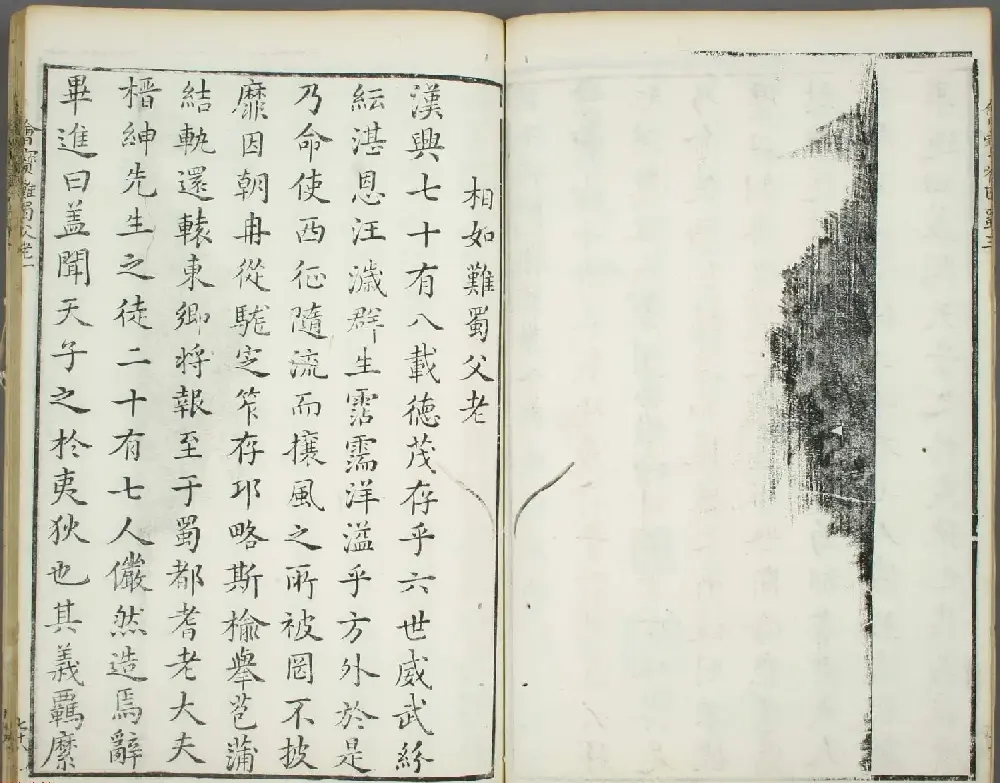 相如難蜀父老
漢興七十有八載德茂存乎六世威武紛
紜湛恩汪濊群生霑濡洋溢乎方外於是
乃命使西征隨流而攘風之所被罔不披
靡因朝冉從駹定笮存邛略斯榆舉苞蒲
結軌還轅東鄉将報至于蜀都耆老大夫
搢紳先生之徒二十有七人儼然造焉辭
畢進曰盖聞天子之於夷狄也其義羈縻